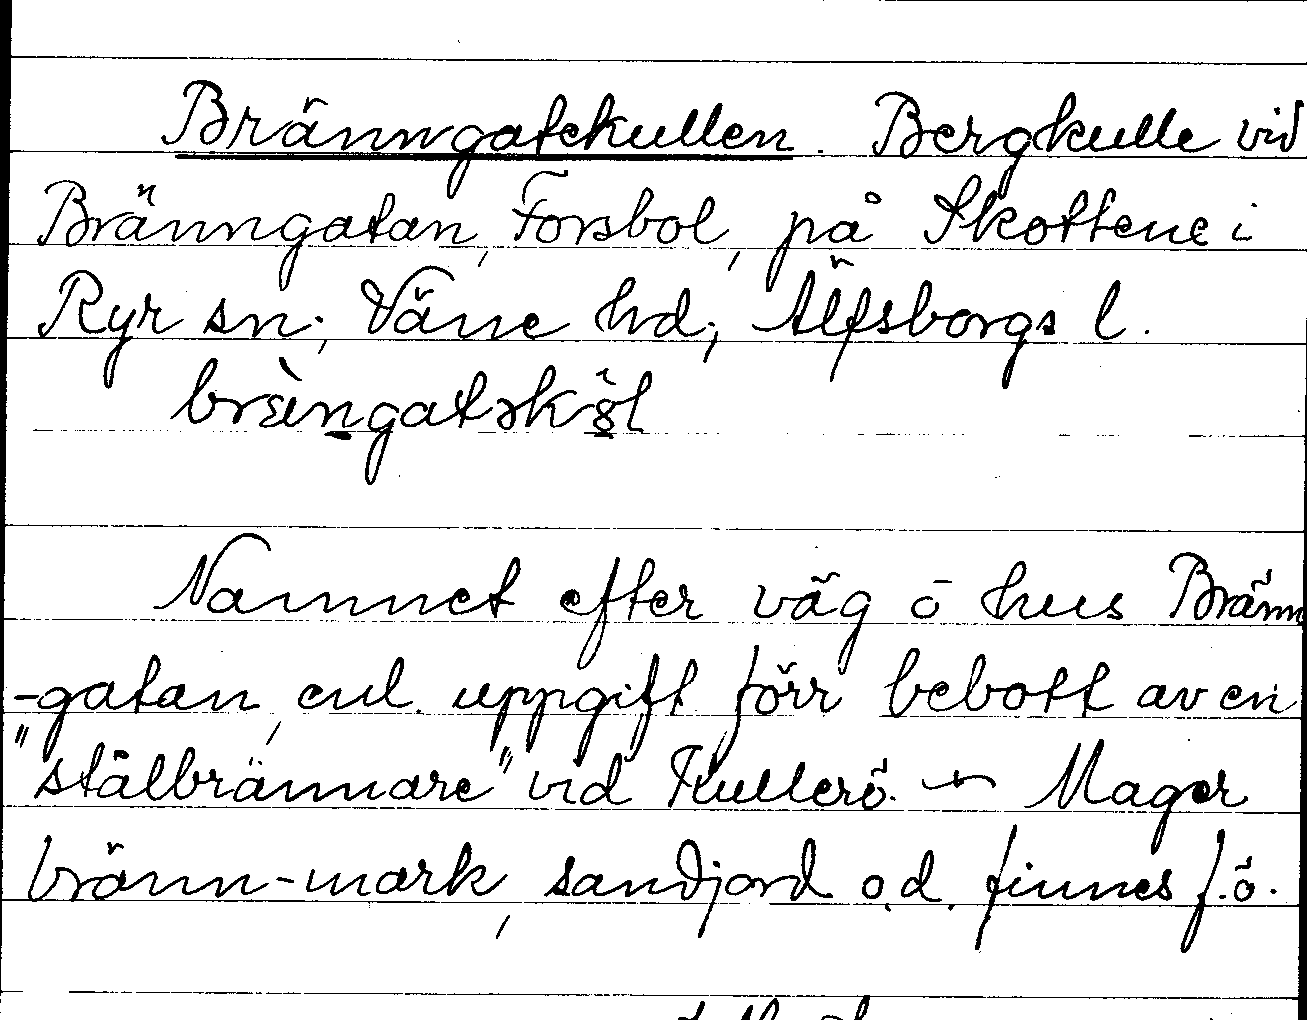 Bränngatekullen. Bergkulle vid
Bränngatan, Forsbol, på Skottene i
Ryr sn; Väne hd; Älfsborgs l.
brängatəkəl
Namnet efter väg o hus Bränn
-gatan, enl. uppgift förr bebott av en
"stålbrännare" vid Kullerö. — Mager
bränn-mark, sandjord o.d. finnes f.ö.